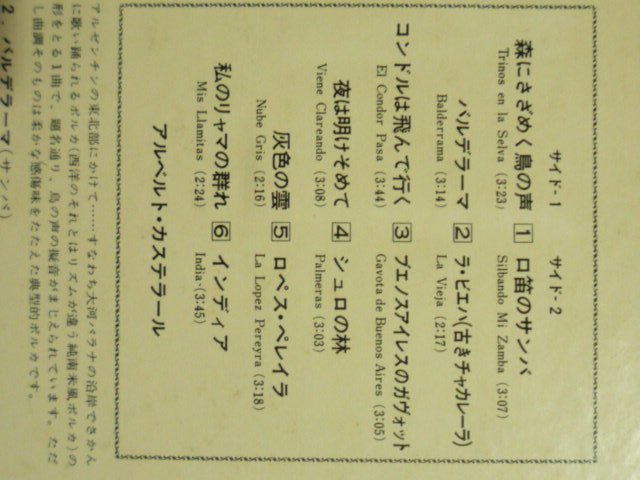 サイド-1
サイド-2
森にさざめく鳥の声 1 口笛のサンバ
Trinos en la Selva (3:23)
Silbando Mi Zamba (3:07)
バルデラーマ 2 ラ・ビエハ(古きチャカレーラ)
Balderrama (3:14)
La Vieja (2:17)
コンドルは飛んで行く 3 ブエノスアイレスのガヴォット
El Condor Pasa (3:44)
Gavota de Buenos Aires (3:05)
夜は明けそめて 4 シュロの林
Viene Clareando (3:08)
Palmeras (3:03)
灰色の雲 5 ロペス・ペレイラ
Nube Gris (2:16)
La Lopez Pereyra (3:18)
私のリャマの群れ 6 インディア
Mis Llamitas (2:24)
India (3:45)
アルベルト・カステラール
アルゼンチンの東北部にかけて……すなわち大河パラナの沿岸でさかん
に歌い踊られるポルカ(西洋のそれとはリズムが違う純南米風ポルカ)の
形をとる1曲で、題名通り、鳥の声の擬音がまじえられています。ただ
し曲調そのものは柔かな感傷味をたたえた典型的ポルカです。
2．バルデラーマ(サンバ)